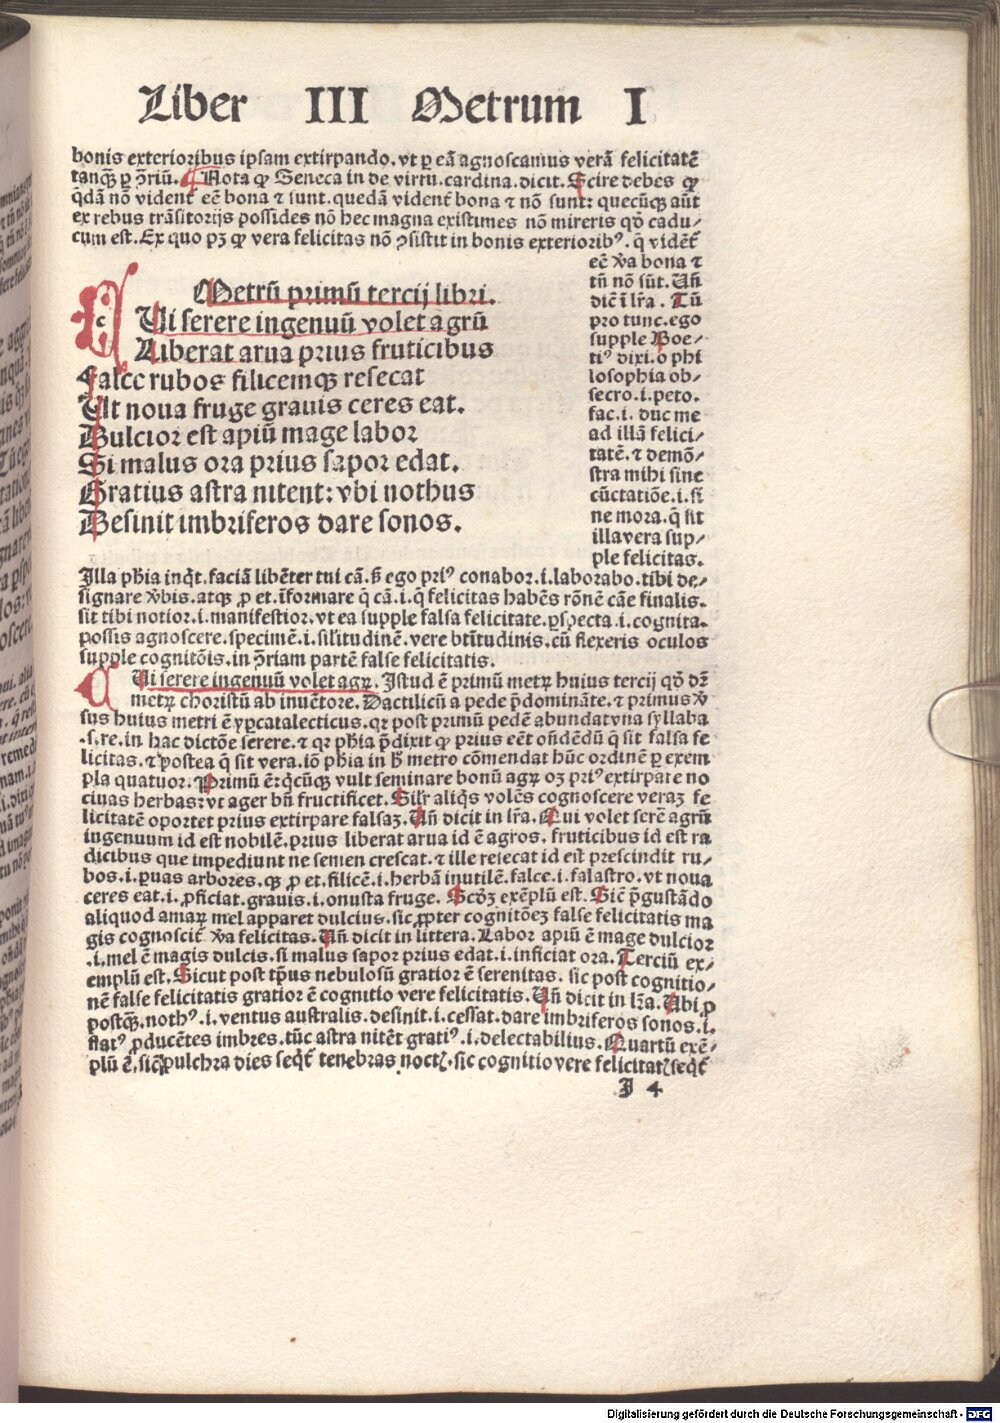 Liber III Metrum I
bonis exterioribus ipsam extirpando. vt ꝑ eā agnoscamus verā felicitatē
tanqȝ ꝑ ꝯ̄riū. Nota ꝙ Seneca in de virtu. cardina. dicit. Scire debes ꝙ
q̄dā nō vident̄ eē bona ⁊ sunt. quedā vident̄ bona ⁊ nō sunt: quecūqȝ aūt
ex rebus trāsitorijs possides nō hec magna existimes nō mireris qđ cadu/
cum est. Ex quo pȝ ꝙ vera felicitas nō ꝯsistit in bonis exteriorib⁹. q̄ vidēt̄
eē ꝟa bona ⁊
tñ nō sūt. Uñ
diē ī lr̄a. Tū
pro tunc. ego
supple Boe/
ti⁹ dixi. o phi
losophia ob/
secro. i. peto.
fac. i. duc me
ad illā felici/
tatē. ⁊ demō/
stra mihi sine
cūctatiōe. i. si
ne mora. q̄ sit
illa vera sup/
ple felicitas.
Metrū primū tercij libri.
c
Ui serere ingenuū volet agrū
Liberat arua prius fruticibus
Falce rubos filicemqȝ resecat
Ut noua fruge grauis ceres eat.
Dulcior est apiū mage labor
Si malus ora prius sapor edat.
Gratius astra nitent: vbi nothus
Desinit imbriferos dare sonos.
Illa ph̄ia inq̄t. faciā libēter tui cā. s̄ ego pri⁹ conabor. i. laborabo. tibi de/
signare ꝟbis. atqȝ ꝓ et. īformare q̄ cā. i. q̄ felicitas habēs rōnē cāe finalis.
sit tibi notior. i. manifestior. vt ea supple falsa felicitate. ꝑspecta. i. cognita.
possis agnoscere. specimē. i. sil'itudinē. vere btītudinis. cū flexeris oculos
supple cognitōis. in ꝯ̄riam partē false felicitatis.
Ui serere ingenuū volet agꝝ. Istud ē primū metꝝ huius tercij qđ dȝ̄
metꝝ choristū ab inuētore. Dactilicū a pede p̄domināte. ⁊ primus ꝟ
sus huius metri ē ypcatalecticus. qꝛ post primū pedē abundat vna syllaba
.s. re. in hac dictōe serere. ⁊ qꝛ ph̄ia p̄dixit ꝙ prius eēt on̄dēdū q̄ sit falsa fe
licitas. ⁊ postea q̄ sit vera. iō ph̄ia in h̄ metro cōmendat hūc ordinē ꝑ exem
pla quatuor. Primū ē: qͥcūqȝ vult seminare bonū agꝝ oȝ pri⁹ extirpare no
ciuas herbas: vt ager bñ fructificet. Silr̄ aliqͥs volēs cognoscere veraȝ fe
licitatē oportet prius extirpare falsaȝ. Uñ dicit in lr̄a. Qui volet serē agrū
ingenuum id est nobilē. prius liberat arua id ē agros. fruticibus id est ra
dicibus que impediunt ne semen crescat. ⁊ ille resecat id est prescindit ru/
bos. i. ꝑuas arbores. qȝ ꝓ et. filicē. i. herbā inutilē. falce. i. falastro. vt noua
ceres eat. i. ꝓficiat. grauis. i. onusta fruge. Scđȝ exēplū est. Sic̄ p̄gustādo
aliquod amaꝝ mel apparet dulcius. sic ꝓpter cognitōeȝ false felicitatis ma
gis cognoscit̄ ꝟa felicitas. Uñ dicit in littera. Labor apiū ē mage dulcior
.i. mel ē magis dulcis. si malus sapor prius edat. i. inficiat ora. Terciū ex/
emplū est. Sicut post tp̄us nebulosū gratior ē serenitas. sic post cognitio/
nē false felicitatis gratior ē cognitio vere felicitatis. Uñ dicit in lr̄a. Ubi ꝓ
postqȝ. noth⁹. i. ventus australis. desinit. i. cessat. dare imbriferos sonos. i.
flat⁹ ꝓducētes imbres. tūc astra nitēt grati⁹. i. delectabilius. Quartū exē/
plū ē. sic̄ pulchra dies seqͥt̄ tenebras noctꝭ. sic cognitio vere felicitatꝭ seqͥt̄
J 4
Digitalisierung gefördert durch die Deutsche Forschungsgemeinschaft - DFG